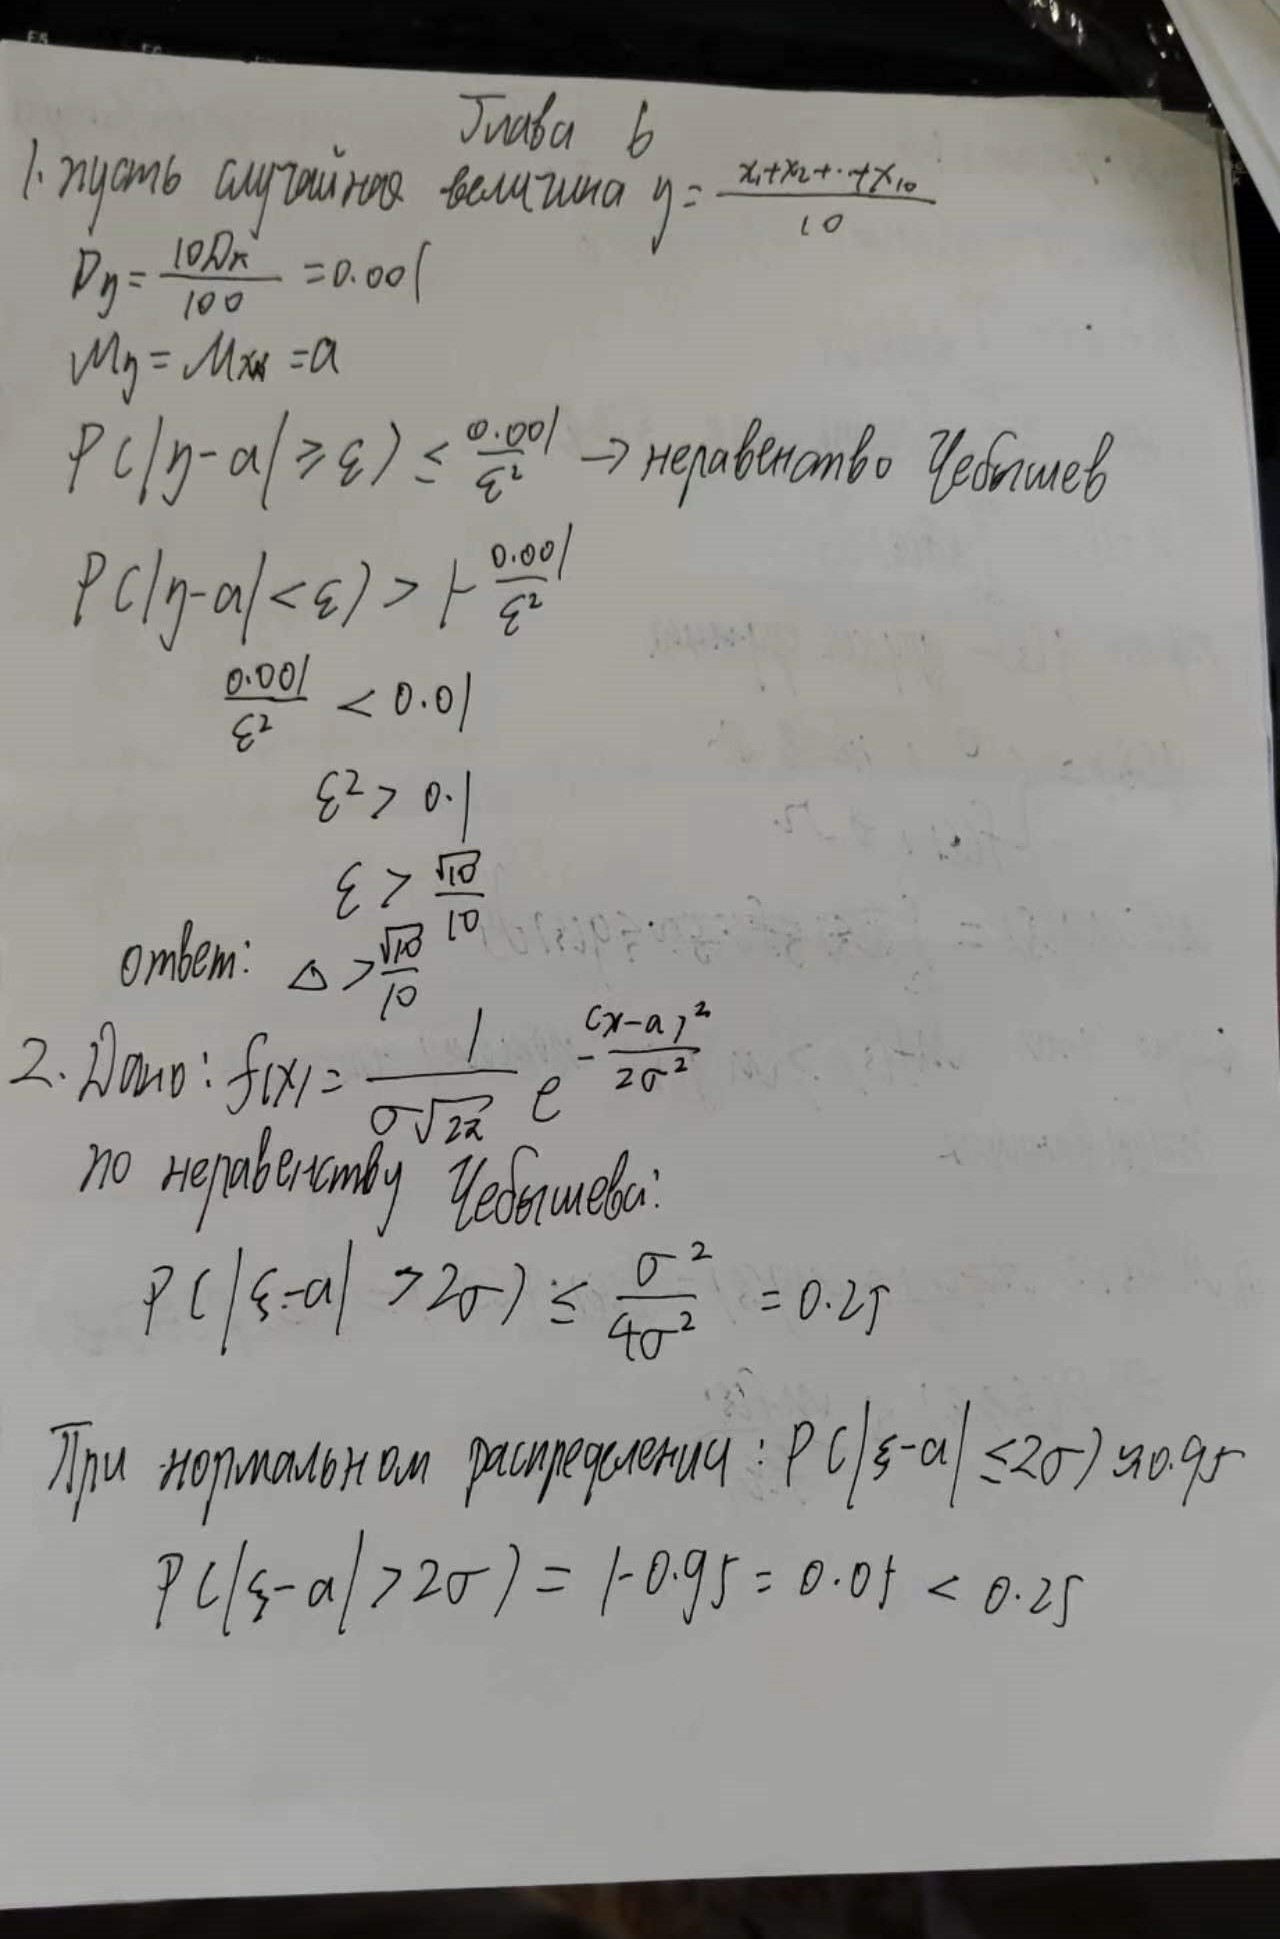 Глава 6
1. пусть случайная величина η = (x₁+x₂+..+x₁₀)/10
Dη = 10Dx/100 = 0.001
Mη = Mx = a
P(|η-a| ≥ ε) ≤ 0.001/ε² → неравенство Чебышев
P(|η-a| < ε) > 1- 0.001/ε²
0.001/ε² < 0.01
ε² > 0.1
ε > √10/10
ответ: △ > √10/10
2. Дано: f(x) = 1/(σ√2π) e^(-(x-a)²/2σ²)
по неравенству Чебышева:
P(|ξ-a| > 2σ) ≤ σ²/4σ² = 0.25
При нормальном распределении: P(|ξ-a| ≤ 2σ) ≈ 0.95
P(|ξ-a| > 2σ) = 1-0.95 = 0.05 < 0.25